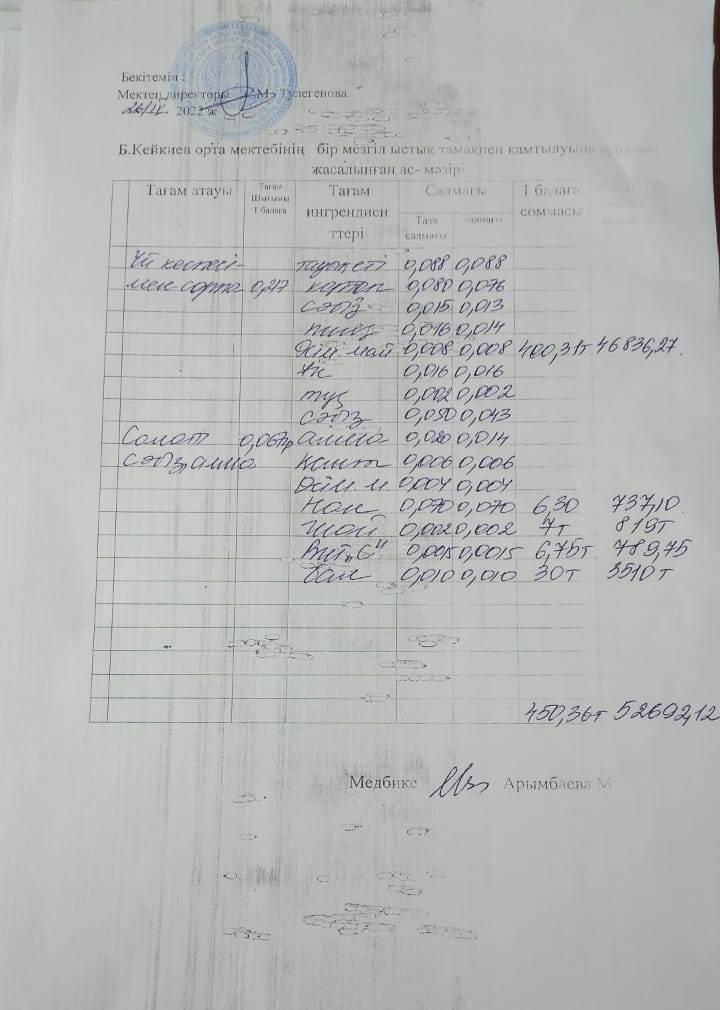 Бекітемін :
Мектеп директоры М. Тулегенова
2022 ж
Б.Кейкиев орта мектебінің бір мезгіл ыстық тамақпен қамтылуына арналған
жасалынған ас- мәзірі
Тағам атауы Тағам Шығымы 1 балаға Тағам ингрендиен ттері Салмағы Таза салмағы салмағы 1 балаға соммасы
Үй кеспесі- тауық еті 0,088 0,088
мен сорпа 0,217 картоп 0,080 0,076
сәбіз 0,015 0,013
пияз 0,016 0,014
Өсім. май 0,008 0,008 400,31т 46836,27.
Ұн 0,016 0,016
тұз 0,002 0,002
сәбіз 0,050 0,043
Салат 0,067гр алма 0,020 0,014
сәбіз, алма қант 0,006 0,006
Өсім. м. 0,004 0,004
Нан 0,070 0,070 6,30 737,10
Шай 0,002 0,002 7т 819т
Вит „С" 0,0015 0,0015 6,75т 789,75
бал 0,010 0,010 30т 3510т
450,36т 52692,12
Медбике Арымбаева М